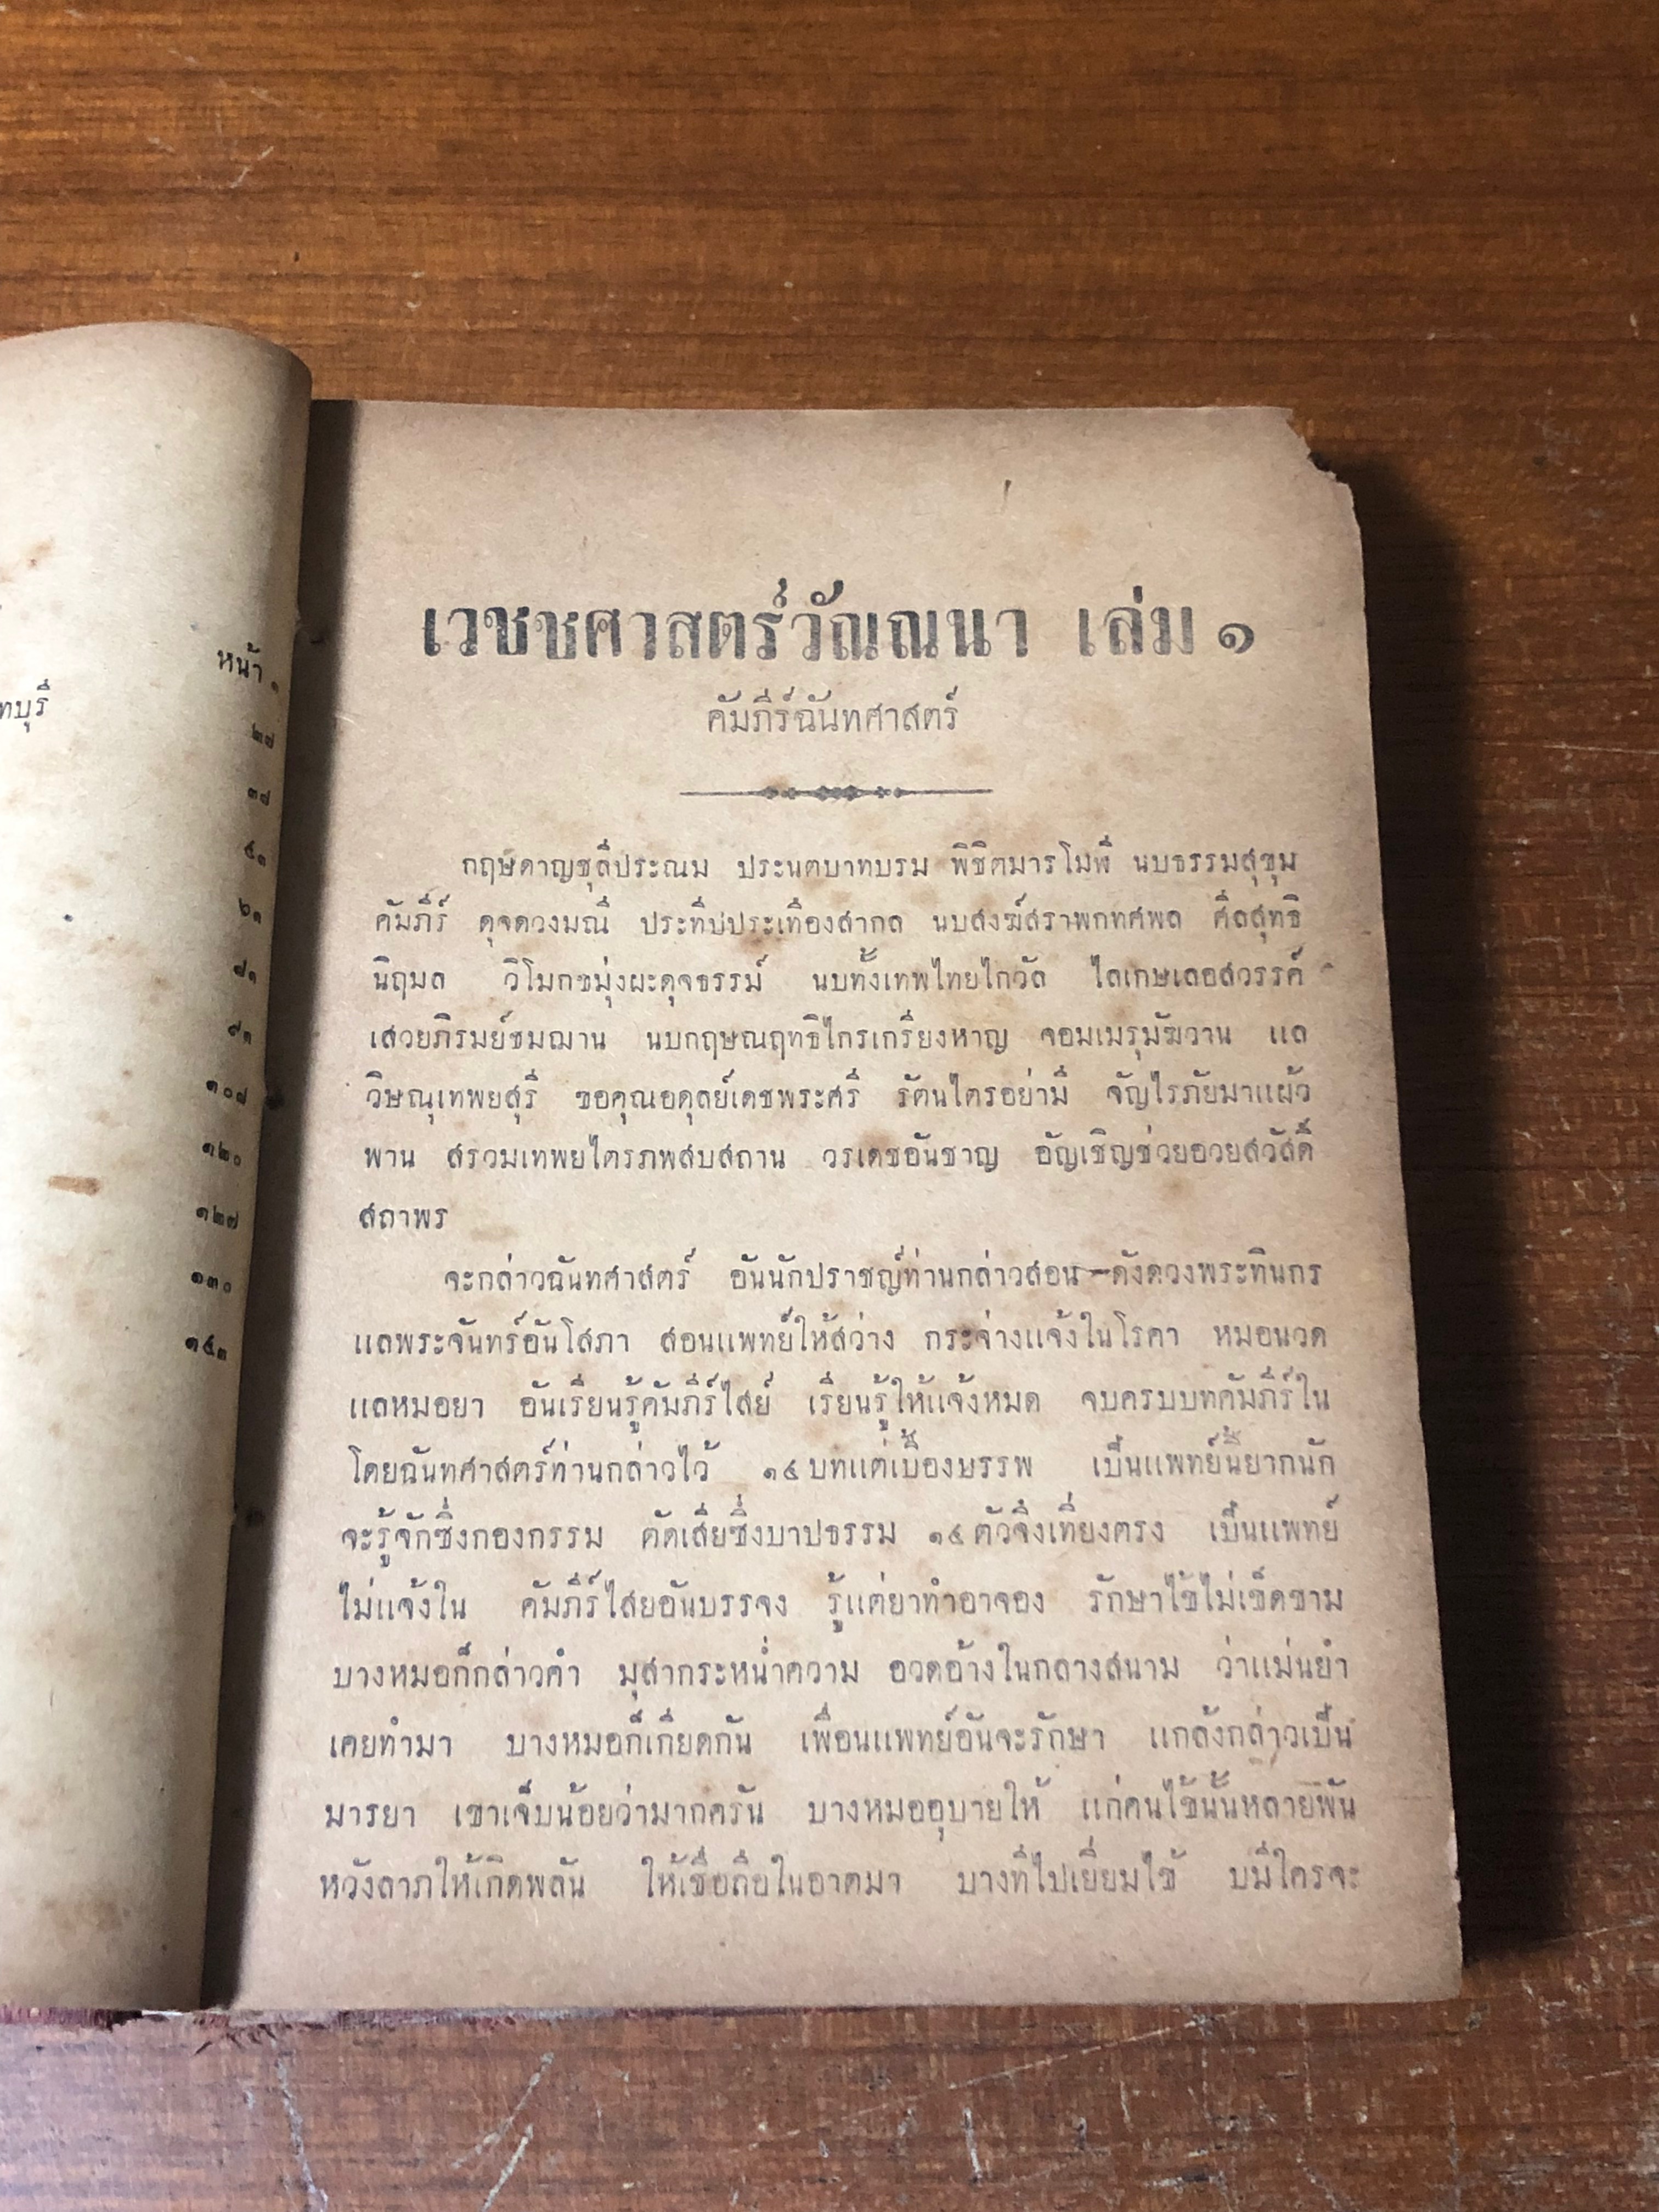 หน้า ๑
ทบุรี
๒๗
๓๘
๕๓
๖๑
๘๑
๙๑
๑๐๘
๑๒๐
๑๒๗
๑๓๐
๑๔๓
เวชชศาสตร์วัณณนา เล่ม ๑
คัมภีร์ฉันทศาสตร์
กฤษดาญชุลีประณม ประนตบาทบรม พิชิตมารโมฬี นบธรรมสุขุม
คัมภีร์ ดุจดวงมณี ประทีปประเทืองสากล นบสงฆ์สราพกทศพล ศีลสุทธิ
นิฤมล วิโมกขมุ่งผะดุจธรรม์ นบทั้งเทพไทยไกวัล ไตเกษเลอสวรรค์
เสวยภิรมย์ชมฌาน นบกฤษณฤทธิไกรเกรียงหาญ จอมเมรุมัฆวาน แล
วิษณุเทพยสุรี ขอคุณอดุลย์เดชพระศรี รัตนไตรอย่ามี จัญไรภัยมาแผ้ว
พาน สรวมเทพยไตรภพสบสถาน วรเดชอันชาญ อัญเชิญช่วยอวยสวัสดิ์
สถาพร
จะกล่าวฉันทศาสตร์ อันนักปราชญ์ท่านกล่าวสอน ดังดวงพระทินกร
แลพระจันทร์อันโสภา สอนแพทย์ให้สว่าง กระจ่างแจ้งในโรคา หมอนวด
แลหมอยา อันเรียนรู้คัมภีร์ไสย์ เรียนรู้ให้แจ้งหมด จบครบบทคัมภีร์ใน
โดยฉันทศาสตร์ท่านกล่าวไว้ ๑๔ บทแต่เบื้องบรรพ เป็นแพทย์นี้ยากนัก
จะรู้จักซึ่งกองกรรม ตัดเสียซึ่งบาปธรรม ๑๔ ตัวจึงเที่ยงตรง เป็นแพทย์
ไม่แจ้งใน คัมภีร์ไสยอันบรรจง รู้แต่ยาทำอาจอง รักษาไข้ไม่เข็ดขาม
บางหมอก็กล่าวคำ มุสากระหน่ำความ อวดอ้างในกลางสนาม ว่าแม่นยำ
เคยทำมา บางหมอก็เกียดกัน เพื่อนแพทย์อันจะรักษา แกล้งกล่าวเป็น
มารยา เขาเจ็บน้อยว่ามากครัน บางหมออุบายให้ แก่คนไข้นั้นหลายพัน
หวังลาภให้เกิดพลัน ให้เชื่อถือในอาตมา บางทีไปเยี่ยมไข้ บมีใครจะ